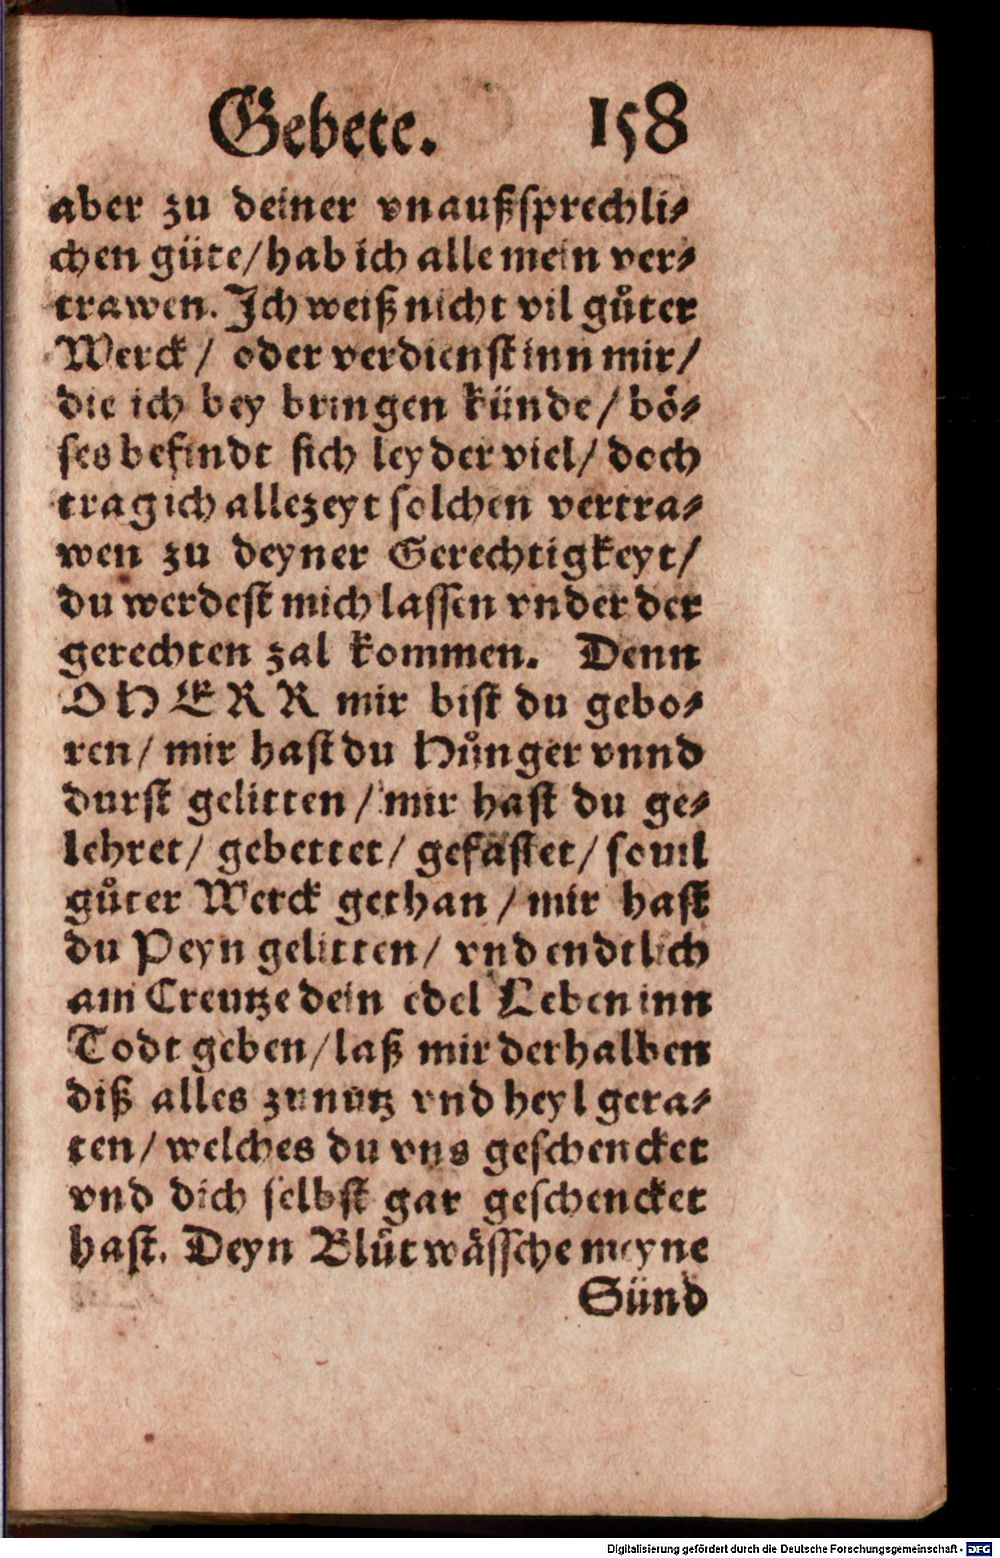 Gebete. 158
aber zu deiner vnaußsprechli⸗
chen güte/ hab ich alle mein ver⸗
trawen. Ich weiß nicht vil gůter
Werck/ oder verdienst inn mir/
die ich bey bringen künde/ bö⸗
ses befindt sich leyder viel/ doch
trag ich allezeyt solchen vertra⸗
wen zu deyner Gerechtigkeyt/
du werdest mich lassen vnder der
gerechten zal kommen. Denn
O HERR mir bist du gebo⸗
ren/ mir hast du Hůnger vnnd
durst gelitten/ mir hast du ge⸗
lehret/ gebettet/ gefastet/ souil
gůter Werck gethan/ mir hast
du Peyn gelitten/ vnd endtlich
am Creutze dein edel Leben inn
Todt geben/ laß mir derhalben
diß alles zu nutz vnd heyl gera⸗
ten/ welches du vns geschencket
vnd dich selbst gar geschencket
hast. Deyn Blůt wässche meyne
Sünd
Digitalisierung gefördert durch die Deutsche Forschungsgemeinschaft - DFG